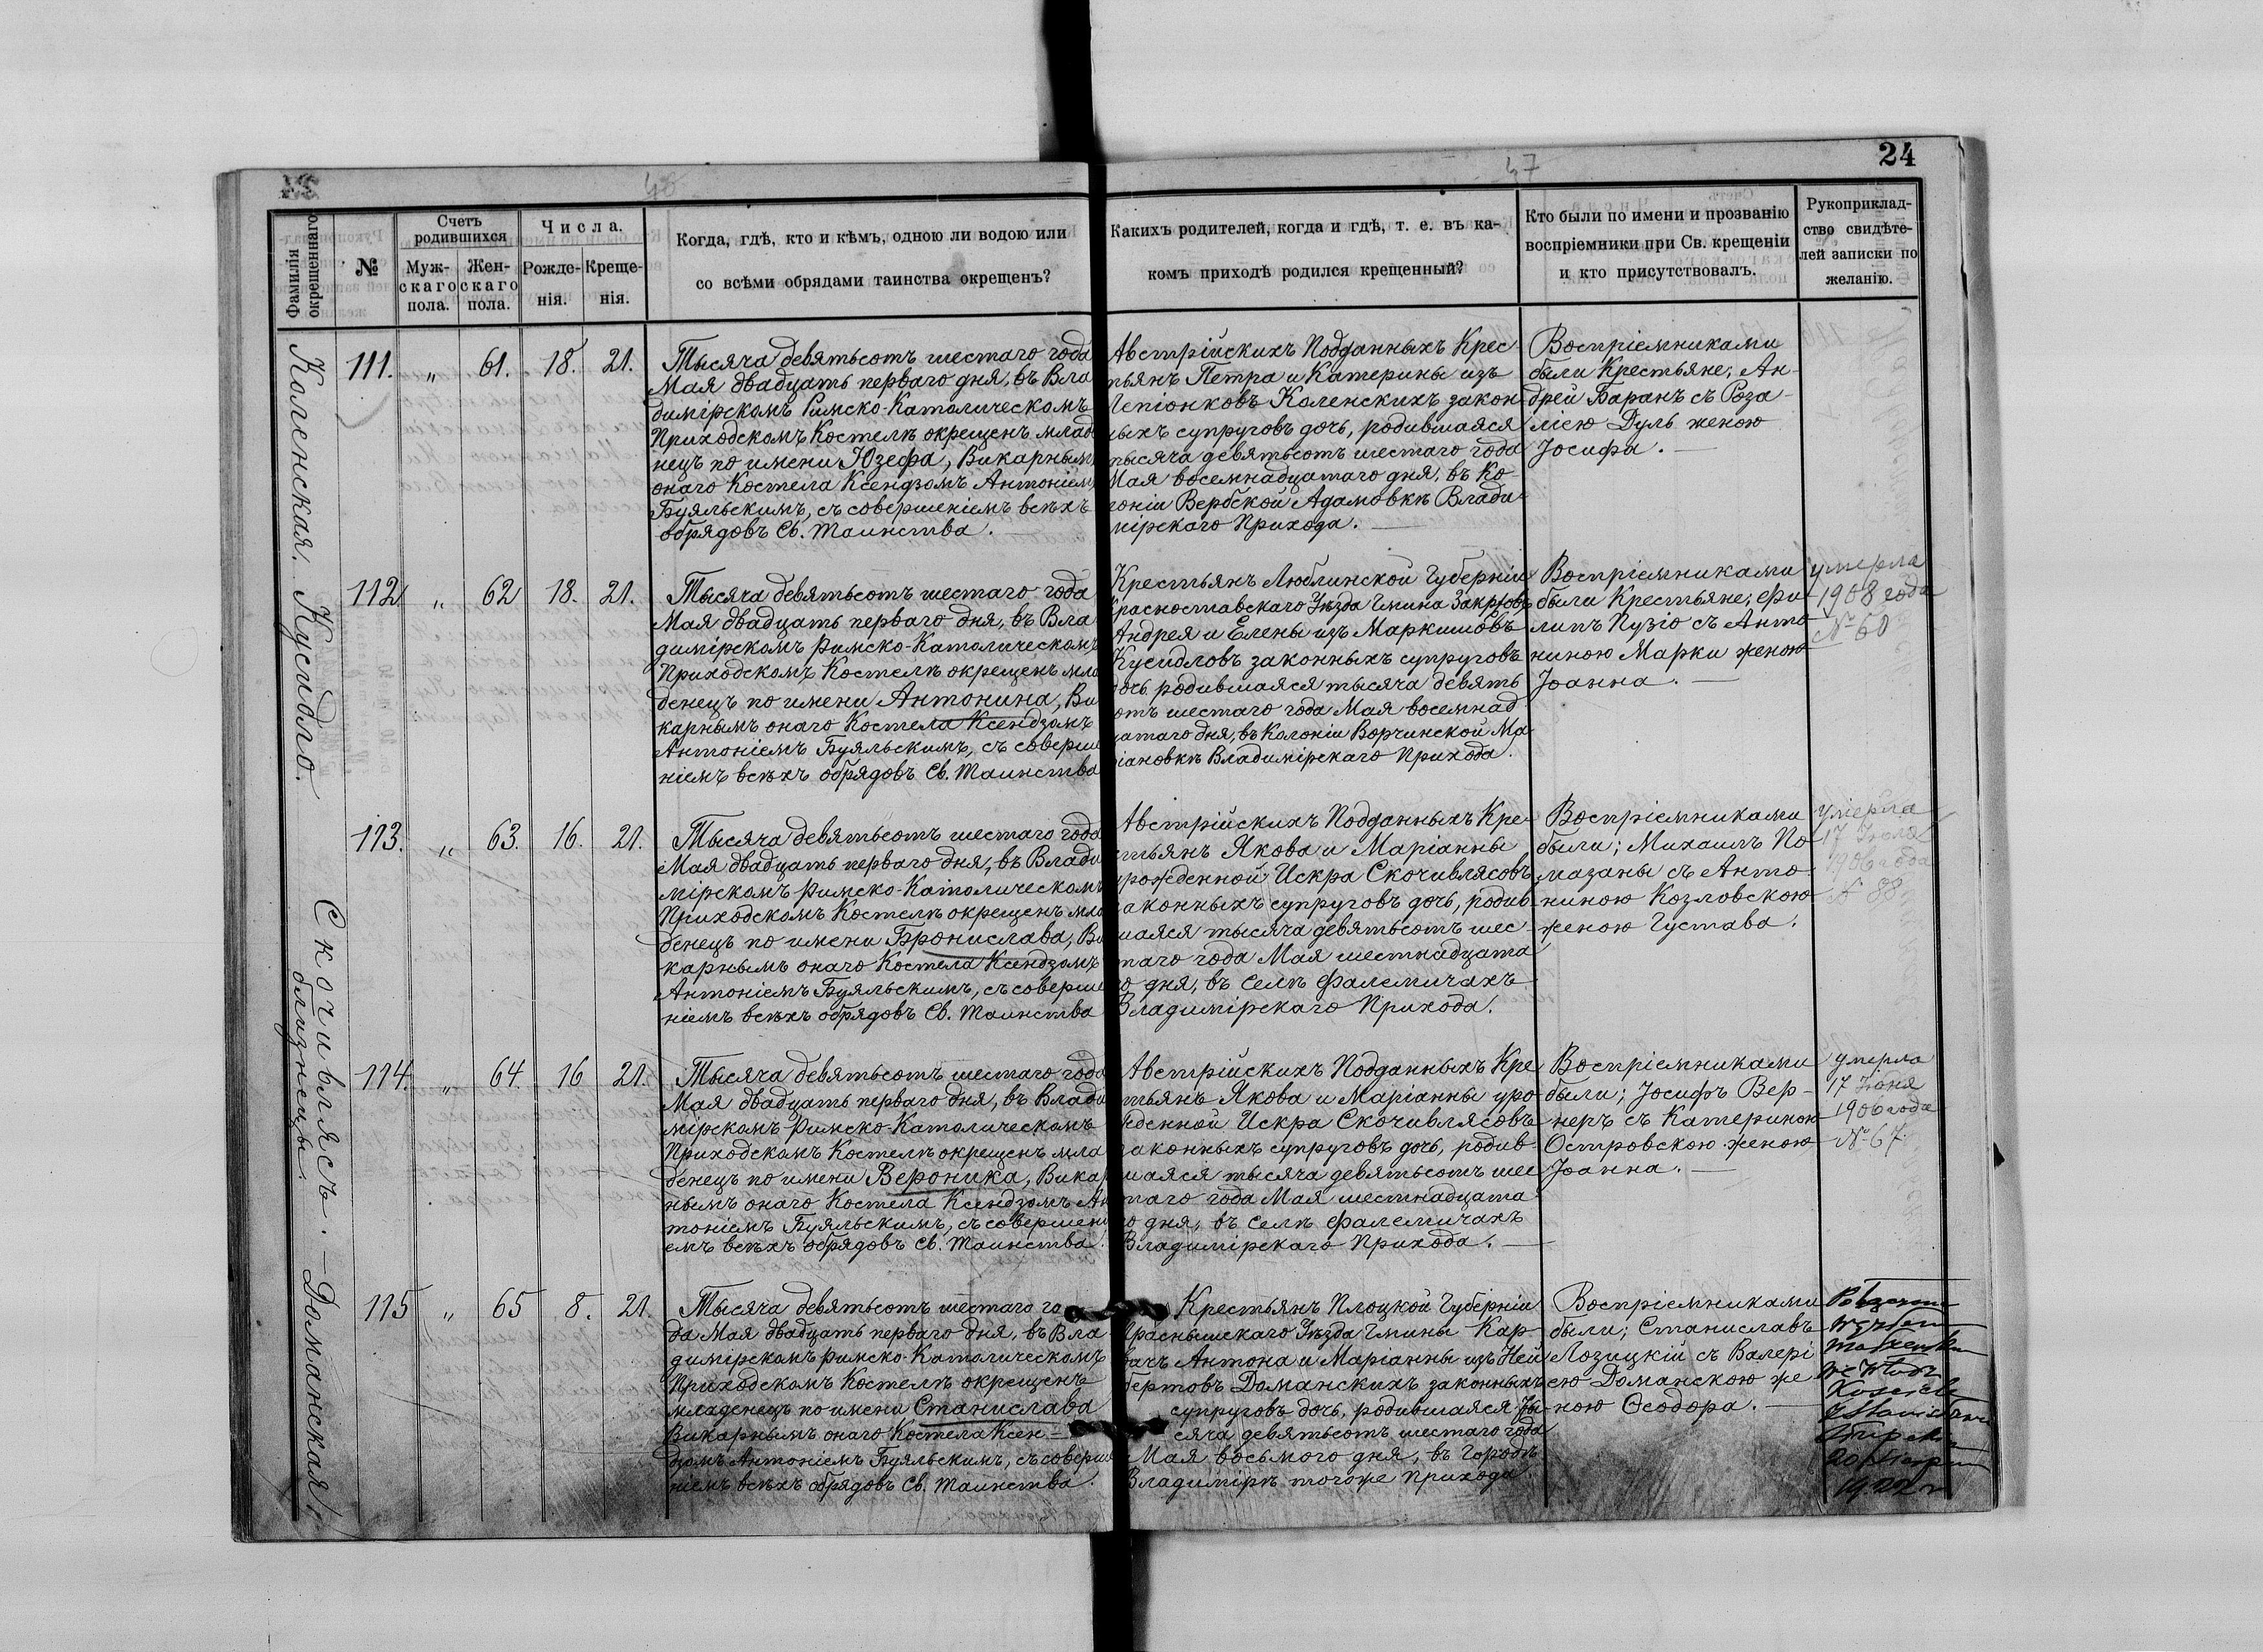 24
47
Фамилія окрещеннаго
№
Счетъ родившихся
Муж-
скаго
пола.
Жен-
скаго
пола.
Числа.
Рожде-
нія.
Креще-
нія.
Когда, гдѣ, кто и кѣмъ, одною ли водою или
со всѣми обрядами таинства окрещенъ?
Какихъ родителей, когда и гдѣ, т. е. въ ка-
комъ приходѣ родился крещенный?
Кто были по имени и прозванію
воспріемники при Св. крещеніи
и кто присутствовалъ.
Рукоприклад-
ство свидѣте-
лей записки по
желанію.
Коленская.
111. „ 61. 18. 21.
Тысяча девятьсотъ шестаго года
Мая двадцать перваго дня, въ Вла
димірскомъ Римско-Католическомъ
Приходскомъ Костелѣ окрещенъ млад
нецъ по имени Юзефа, Викарнымъ
онаго Костела Ксендзомъ Антоніемъ
Буяльскимъ, съ совершеніемъ всѣхъ
обрядовъ Св. Таинства.
Австрійскихъ Подданныхъ Крес
тьянъ Петра и Катерины изъ
Лепіонковъ Коленскихъ закон
ныхъ супруговъ дочь, родившаяся
тысяча девятьсотъ шестаго года
Мая восемнадцатаго дня, въ Ко-
лоніи Вербской Адамовкѣ Влади-
мірскаго Прихода.
Воспріемниками
были Крестьяне; Ан-
дрей Баранъ съ Роза-
ліею Дуль женою
Іосифа.
Кусидло.
112 „ 62 18. 21.
Тысяча девятьсотъ шестаго года
Мая двадцать перваго дня, въ Вла
димірскомъ Римско-Католическомъ
Приходскомъ Костелѣ окрещенъ мла
денецъ по имени Антонина, Ви
карнымъ онаго Костела Ксендзомъ
Антоніемъ Буяльскимъ, съ соверше
ніемъ всѣхъ обрядовъ Св. Таинства
Крестьянъ Люблинской Губерніи
Красноставскаго Уѣзда Гмина
Андрея и Елены изъ Маркишовъ
Кусидловъ законныхъ супруговъ
дочь родившаяся тысяча девять
отъ шестаго года Мая восемнад
цатаго дня, въ Колоніи Ворчинской Ма
ріановкѣ Владимірскаго Прихода.
Воспріемниками
были Крестьяне; Фи-
липъ Пузіо съ Анто
ниною Марки женою
Іоанна.
умерла
1908 года
№ 60
Скочивлясъ.
близнецы.
113. „ 63. 16. 21.
Тысяча девятьсотъ шестаго года
Мая двадцать перваго дня, въ Влади
мірскомъ Римско-Католическомъ
Приходскомъ Костелѣ окрещенъ мла
денецъ по имени Бронислава, Ви
карнымъ онаго Костела Ксендзомъ
Антоніемъ Буяльскимъ, съ соверше
ніемъ всѣхъ обрядовъ Св. Таинства
Австрійскихъ Подданныхъ Кре
стьянъ Якова и Маріанны
урожденной Искра Скочивлясовъ
законныхъ супруговъ дочь, родив
шаяся тысяча девятьсотъ шес-
таго года Мая шестнадцата
го дня, въ Селѣ Фалемичахъ
Владимірскаго Прихода.
Воспріемниками
были; Михаилъ По
мазаны съ Анто
ниною Козловскою
женою Густава.
умерла
17
1906 года
№ 88
114. „ 64. 16 21.
Тысяча девятьсотъ шестаго года
Мая двадцать перваго дня, въ Влади
мірскомъ Римско-Католическомъ
Приходскомъ Костелѣ окрещенъ мла
денецъ по имени Вероника, Викар
нымъ онаго Костела Ксендзомъ Ан
тоніемъ Буяльскимъ, съ совершені
емъ всѣхъ обрядовъ Св. Таинства.
Австрійскихъ Подданныхъ Кре
стьянъ Якова и Маріанны уро-
жденной Искра Скочивлясовъ
законныхъ супруговъ дочь, родив-
шаяся тысяча девятьсотъ шес
таго года Мая шестнадцата
го дня, въ Селѣ Фалемичахъ
Владимірскаго Прихода.
Воспріемниками
были; Іосифъ Вер-
неръ съ Катериною
Островскою женою
Іоанна.
умерла
17 Іюня
1906 года
№ 67
Доманская
115 „ 65 8. 21.
Тысяча девятьсотъ шестаго го
да Мая двадцать перваго дня, въ Вла
димірскомъ Римско-Католическомъ
Приходскомъ Костелѣ окрещенъ
младенецъ по имени Станислава
Викарнымъ онаго Костела Ксен-
дзомъ Антоніемъ Буяльскимъ, съ соверше
ніемъ всѣхъ обрядовъ Св. Таинства.
Крестьянъ Плоцкой Губерніи
Праснышскаго Уѣзда Гмины Кар-
вачъ Антона и Маріанны изъ Ней
бертовъ Доманскихъ законныхъ
супруговъ дочь, родившаяся ты-
сяча девятьсотъ шестаго года
Мая восьмого дня, въ Городѣ
Владимірѣ тогоже Прихода
Воспріемниками
были; Станиславъ
Лозицкій съ Валері
ею Доманскою же
ною Ѳеодора.
1922 r